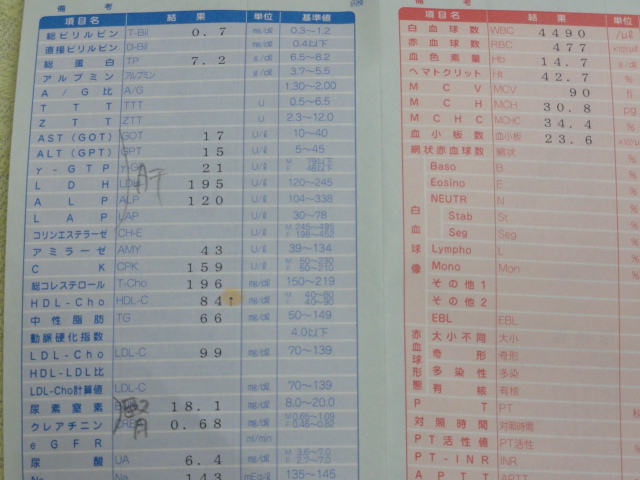 備 考
項目名 結果 単位 基準値
総ビリルビン T-Bil 0.7 mg/dℓ 0.3~1.2
直接ビリルビン D-Bil mg/dℓ 0.4以下
総蛋白 TP 7.2 g/dℓ 6.5~8.2
アルブミン アルブミン g/dℓ 3.7~5.5
A/G比 A/G 1.30~2.00
TTT TTT U 0.5~6.5
ZTT ZTT U 2.3~12.0
AST(GOT) GOT 17 U/ℓ 10~40
ALT(GPT) GPT 15 U/ℓ 5~45
γ-GTP 21 U/ℓ
肝
LDH 195 U/ℓ 120~245
ALP ALP 120 U/ℓ 104~338
LAP LAP U/ℓ 30~78
コリンエステラーゼ CH-E U/ℓ
アミラーゼ AMY 43 U/ℓ 39~134
CK CPK 159 U/ℓ M 50~230 F 50~210
総コレステロール T-Cho 196 mg/dℓ 150~219
HDL-Cho HDL-C 84↑ mg/dℓ M 40~80 F 40~90
中性脂肪 TG 66 mg/dℓ 50~149
動脈硬化指数 4.0以下
LDL-Cho LDL-C 99 mg/dℓ 70~139
HDL-LDL比
LDL-Cho計算値 LDL-C mg/dℓ 70~139
尿素窒素 18.1 mg/dℓ 8.0~20.0
クレアチニン CRE 0.68 mg/dℓ M 0.65~1.09 F 0.46~0.82
eGFR ml/min
尿酸 UA 6.4 mg/dℓ
Na 143 mEq/ℓ 135~145
備 考
項目名 結果 単位
白血球数 WBC 4490 /μℓ
赤血球数 RBC 477
血色素量 Hb 14.7 g/dℓ
ヘマトクリット Ht 42.7 %
MCV MCV 90 fl
MCH MCH 30.8 pg
MCHC MCHC 34.4 %
血小板数 血小板 23.6
網状赤血球数 網状
白血球像
Baso B %
Eosino E %
NEUTR N %
Stab St %
Seg Seg %
Lympho L %
Mono Mon %
その他1
その他2
EBL EBL
赤血球形態
大小不同 大小
奇形 奇形
多染性 多染
有核 有核
PT PT
対照時間 対照時間
PT活性値 PT活性
PT-INR INR
APTT APTT